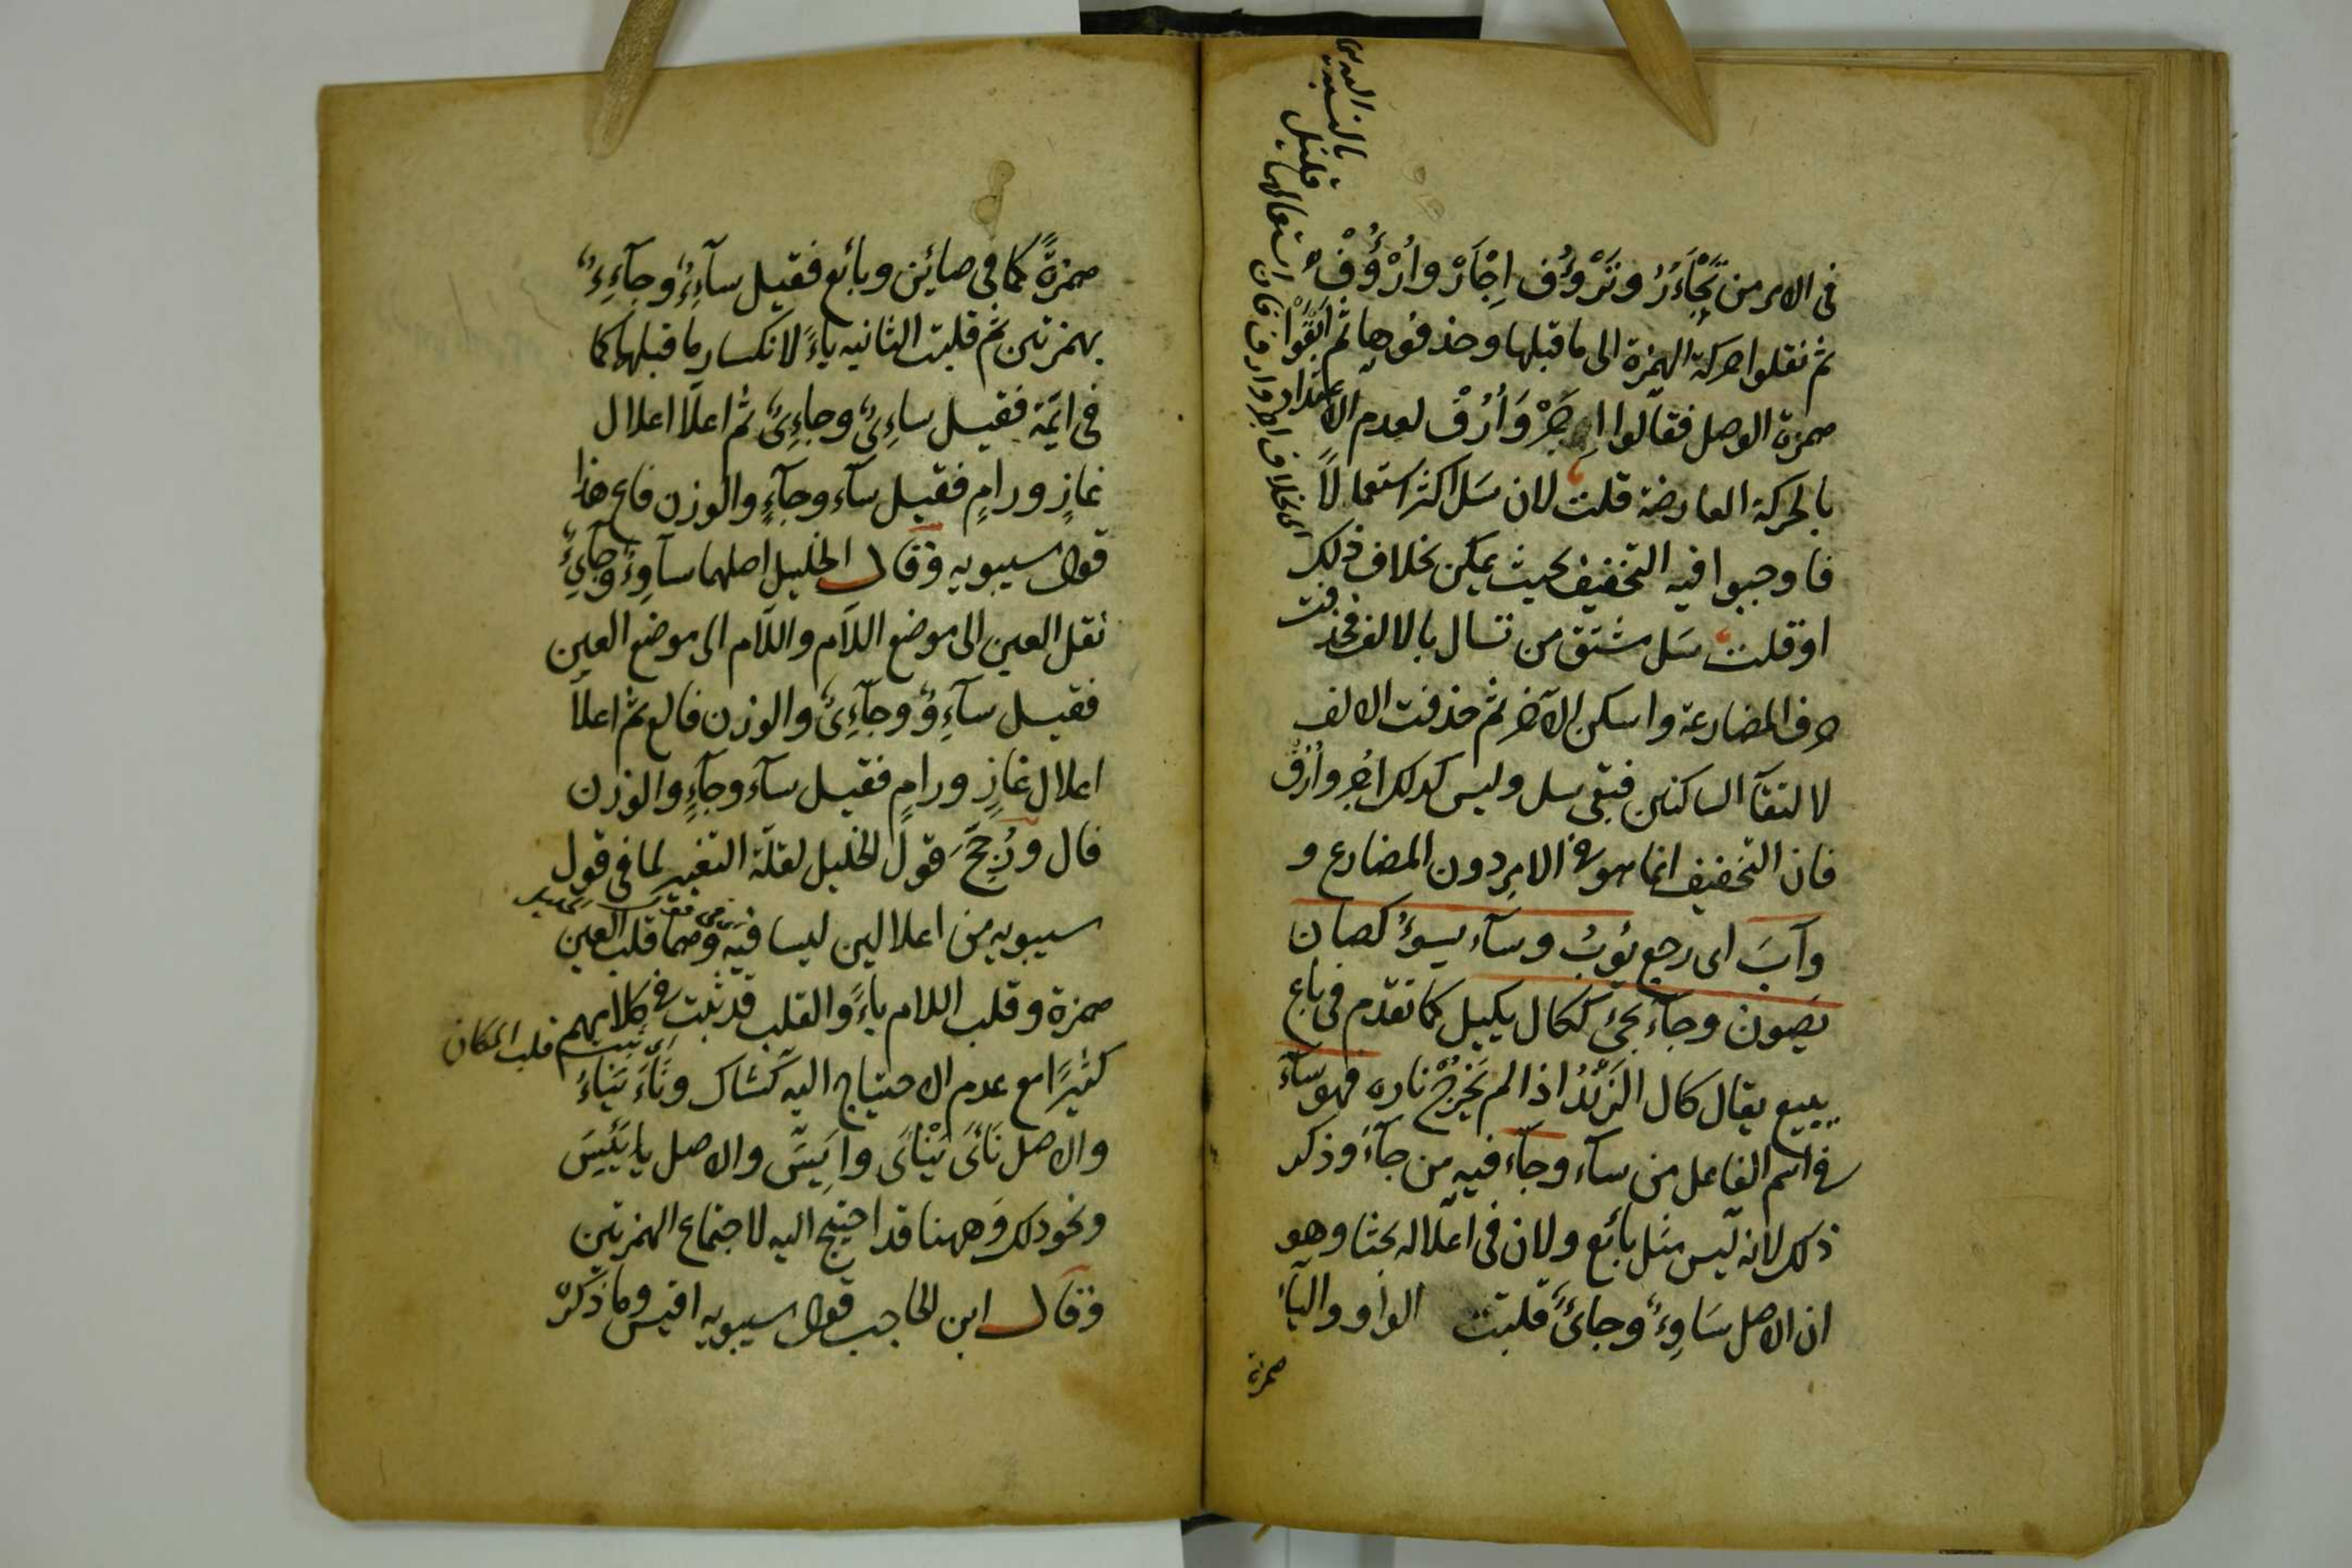 فى الامر من تَجْأَرُ وتَرْؤُف اِجْأَرْ وارْؤُفْ
ثم نقلوا حركة الهمزة الى ما قبلها وحذفوها ثم ابقوا
همزة الوصل فقالوا اِجَرْ وَاُرُفْ لعدم الاعتداد
بالحركة العارضة قلت لان سَل اكثر استعمالاً
فاوجبوا فيه التخفيف بحيث يمكن بخلاف ذلك
او قلت سَل مشتق من تسال بالالف فحذفت
حرف المضارعة واسكن الآخر ثم حذفت الالف
لالتقآ الساكنين فبقى سل وليس كذلك اجر وارُف
فان التخفيف انما هو فى الامر دون المضارع و
وآبَ اى رجع يؤبُ وسآء يسوءُ كصان
يصون وجآء يجئ ككال يكيل كما تقدّم فى باع
يبيع يقال كال الزَنْدُ اذا لم يَخْرُجْ ناره فهو سآء
فى اسم الفاعل من سآء وجآء فيه من جآءَ وذكر
ذلك لانه ليس مثل بائع ولان فى اعلاله بحثا وهو
ان الاصل سَاوِءٌ وجائ قلبت الواو واليآء
همزة
اى بخلاف اجر وارف فان استعمالهما
قليل
همزةً كما فى صائن وبائع فقيل سآءِءٌ وجآءِءٌ
بهمزتين ثم قلبت الثانيه ياءً لانكسار ما قبلها كما
فى ائمّة فقيل ساءِىٌ وجاءِىٌ ثم اعلّا اعلال
غازٍ ورامٍ فقيل سآء وجآءٍ والوزن فاعٍ هذا
قول سيبويه وقال الخليل اصلهما ساَوِءٌ وجآيِءٌ
نقل العين الى موضع اللاَم واللاَم الى موضع العين
فقيل سآءِوٌ وجآءِىٌ والوزن فالع ثم اعلاّ
اعلال غازٍ ورامٍ فقيل سآء وجآءٍ والوزن
فال ورُجِّحَ قول الخليل لقلّة التغيير لما فى قول
سيبويه من اعلالين ليسا فيه وهما قلب العين
همزة وقلب اللام ياءً والقلب قد ثبت فى كلامهم
قلب المكان
كثيرًا مع عدم الاحتياج اليه كشاك ونَاءَ يَنَاءُ
والاصل نَأَىَ يَنْأَى واَيِسَ والاصل يَئِسَ
ونحو ذلك وههنا قد احتيج اليه لاجتماع الهمزتين
وقال ابن الحاجب قول سيبويه اقيس وما ذكره